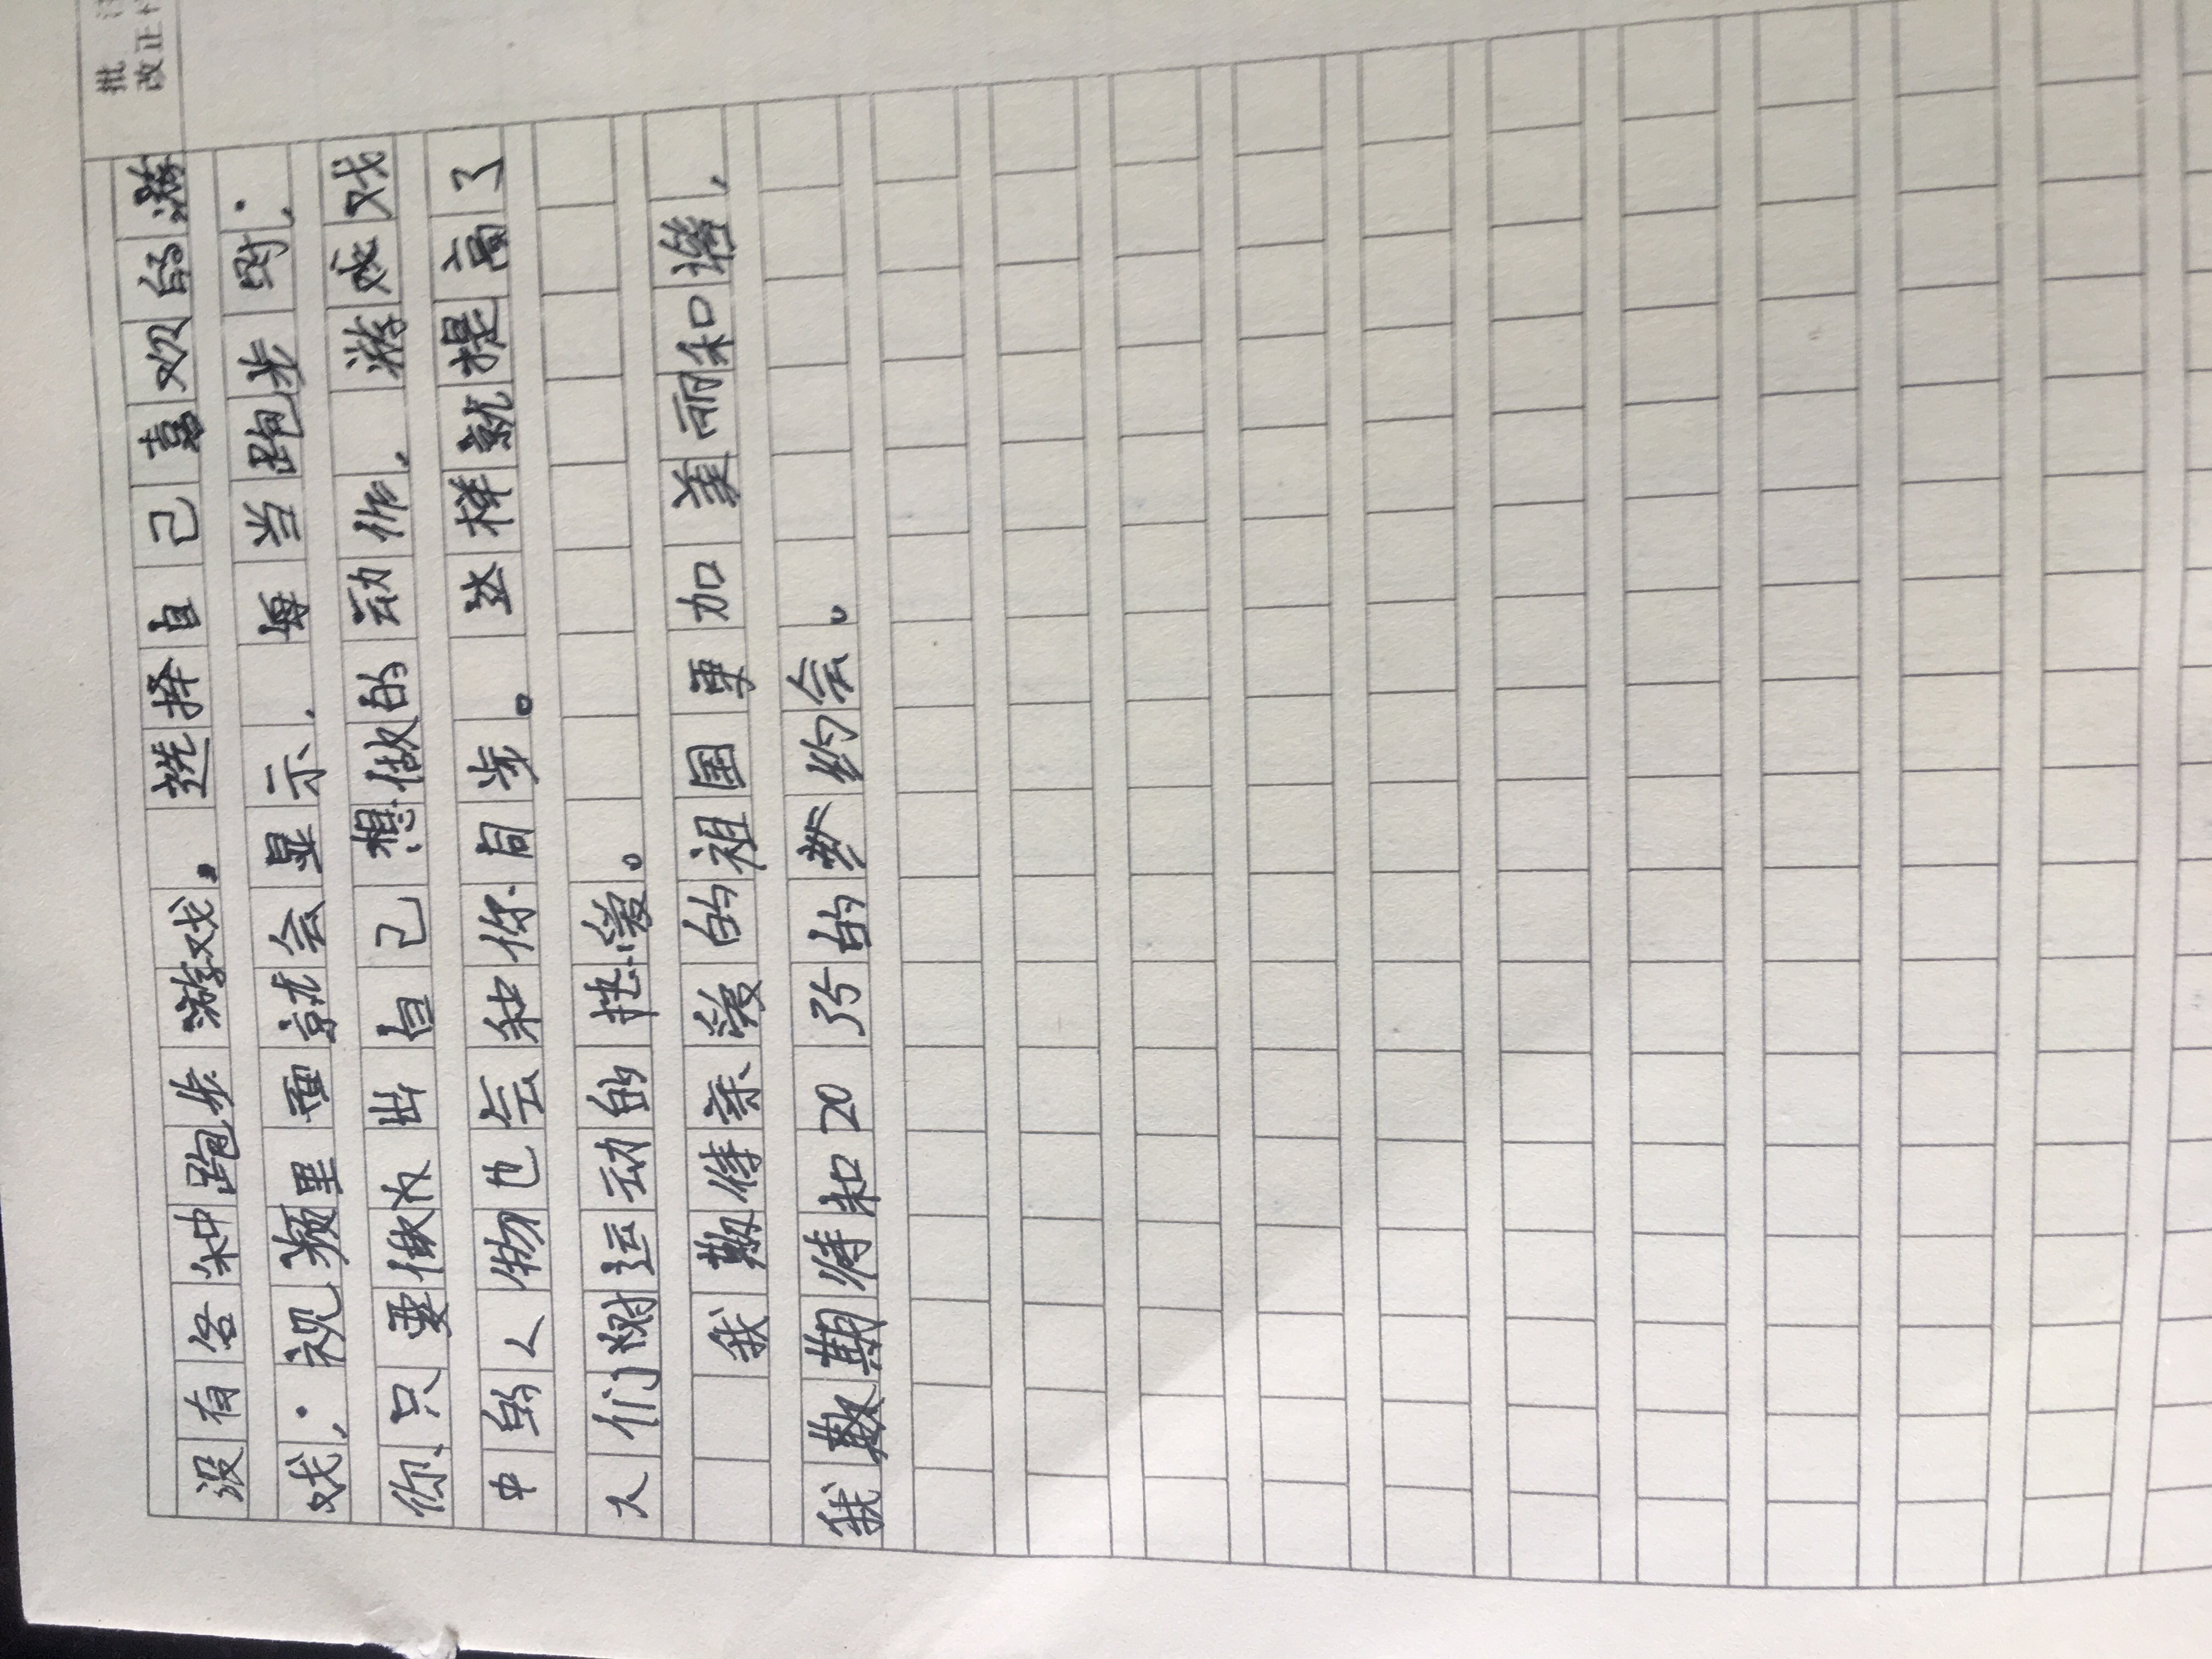 批
改正
没有各种跑步游戏。选择自己喜欢的游
戏,视频里面就会显示,每当跑步时,
你只要做出自己想做的动作,游戏戏
中的人物也会和你同步。这样就提高了
人们对运动的热爱。
我期待亲爱的祖国更加美丽和谐,
我期待和2035的梦约会。